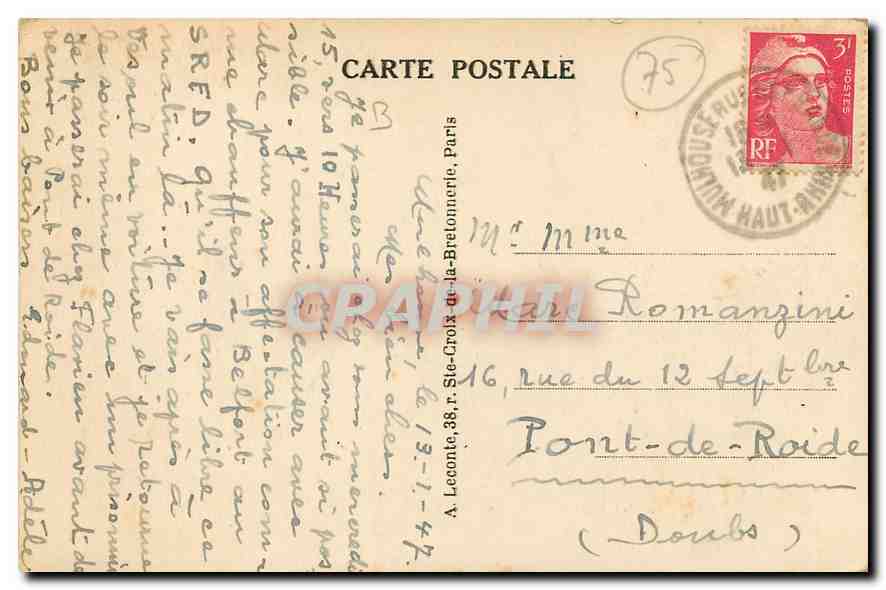 CARTE POSTALE
75
3F
POSTES
RF
MULHOUSE
HAUT-RHIN
47
A. Leconte, 38, r. Ste-Croix-de-la-Bretonnerie, Paris
CPAPHIL
Mr Mme
Romanzini
16, rue du 12 Septbre
Pont-de-Roide
(Doubs)
Mulhouse, le 13-1-47.
Mes bien chers.
Je passerai chez vous mercredi
15, vers 10 Heures ou avant si pos
sible. J'aurai à causer avec
pour son affectation com-
me chauffeur à Belfort au
SRED, qu'il se fasse libre ce
matin là.. Je vais après à
Vesoul en voiture et je retourne
le soir même avec un prisonnier
Je passerai chez avant de
venir à Pont de Roide.
Bons baisers Edouard - Adèle